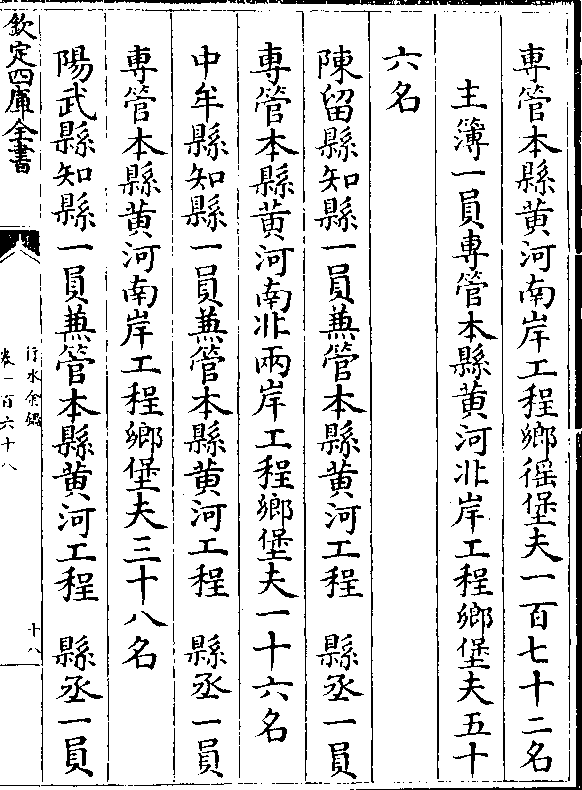 専管本縣黄河南岸工程鄉徭堡夫一百七十二名
主簿一員専管本縣黄河北岸工程鄉堡夫五十
六名
陳留縣知縣一員兼管本縣黄河工程　縣丞一員
専管本縣黄河南北兩岸工程鄉堡夫一十六名
中牟縣知縣一員兼管本縣黄河工程　縣丞一員
専管本縣黄河南岸工程鄉堡夫三十八名
陽武縣知縣一員兼管本縣黄河工程　縣丞一員
欽定四庫全書
行水金鑑
卷一百六十八
十八